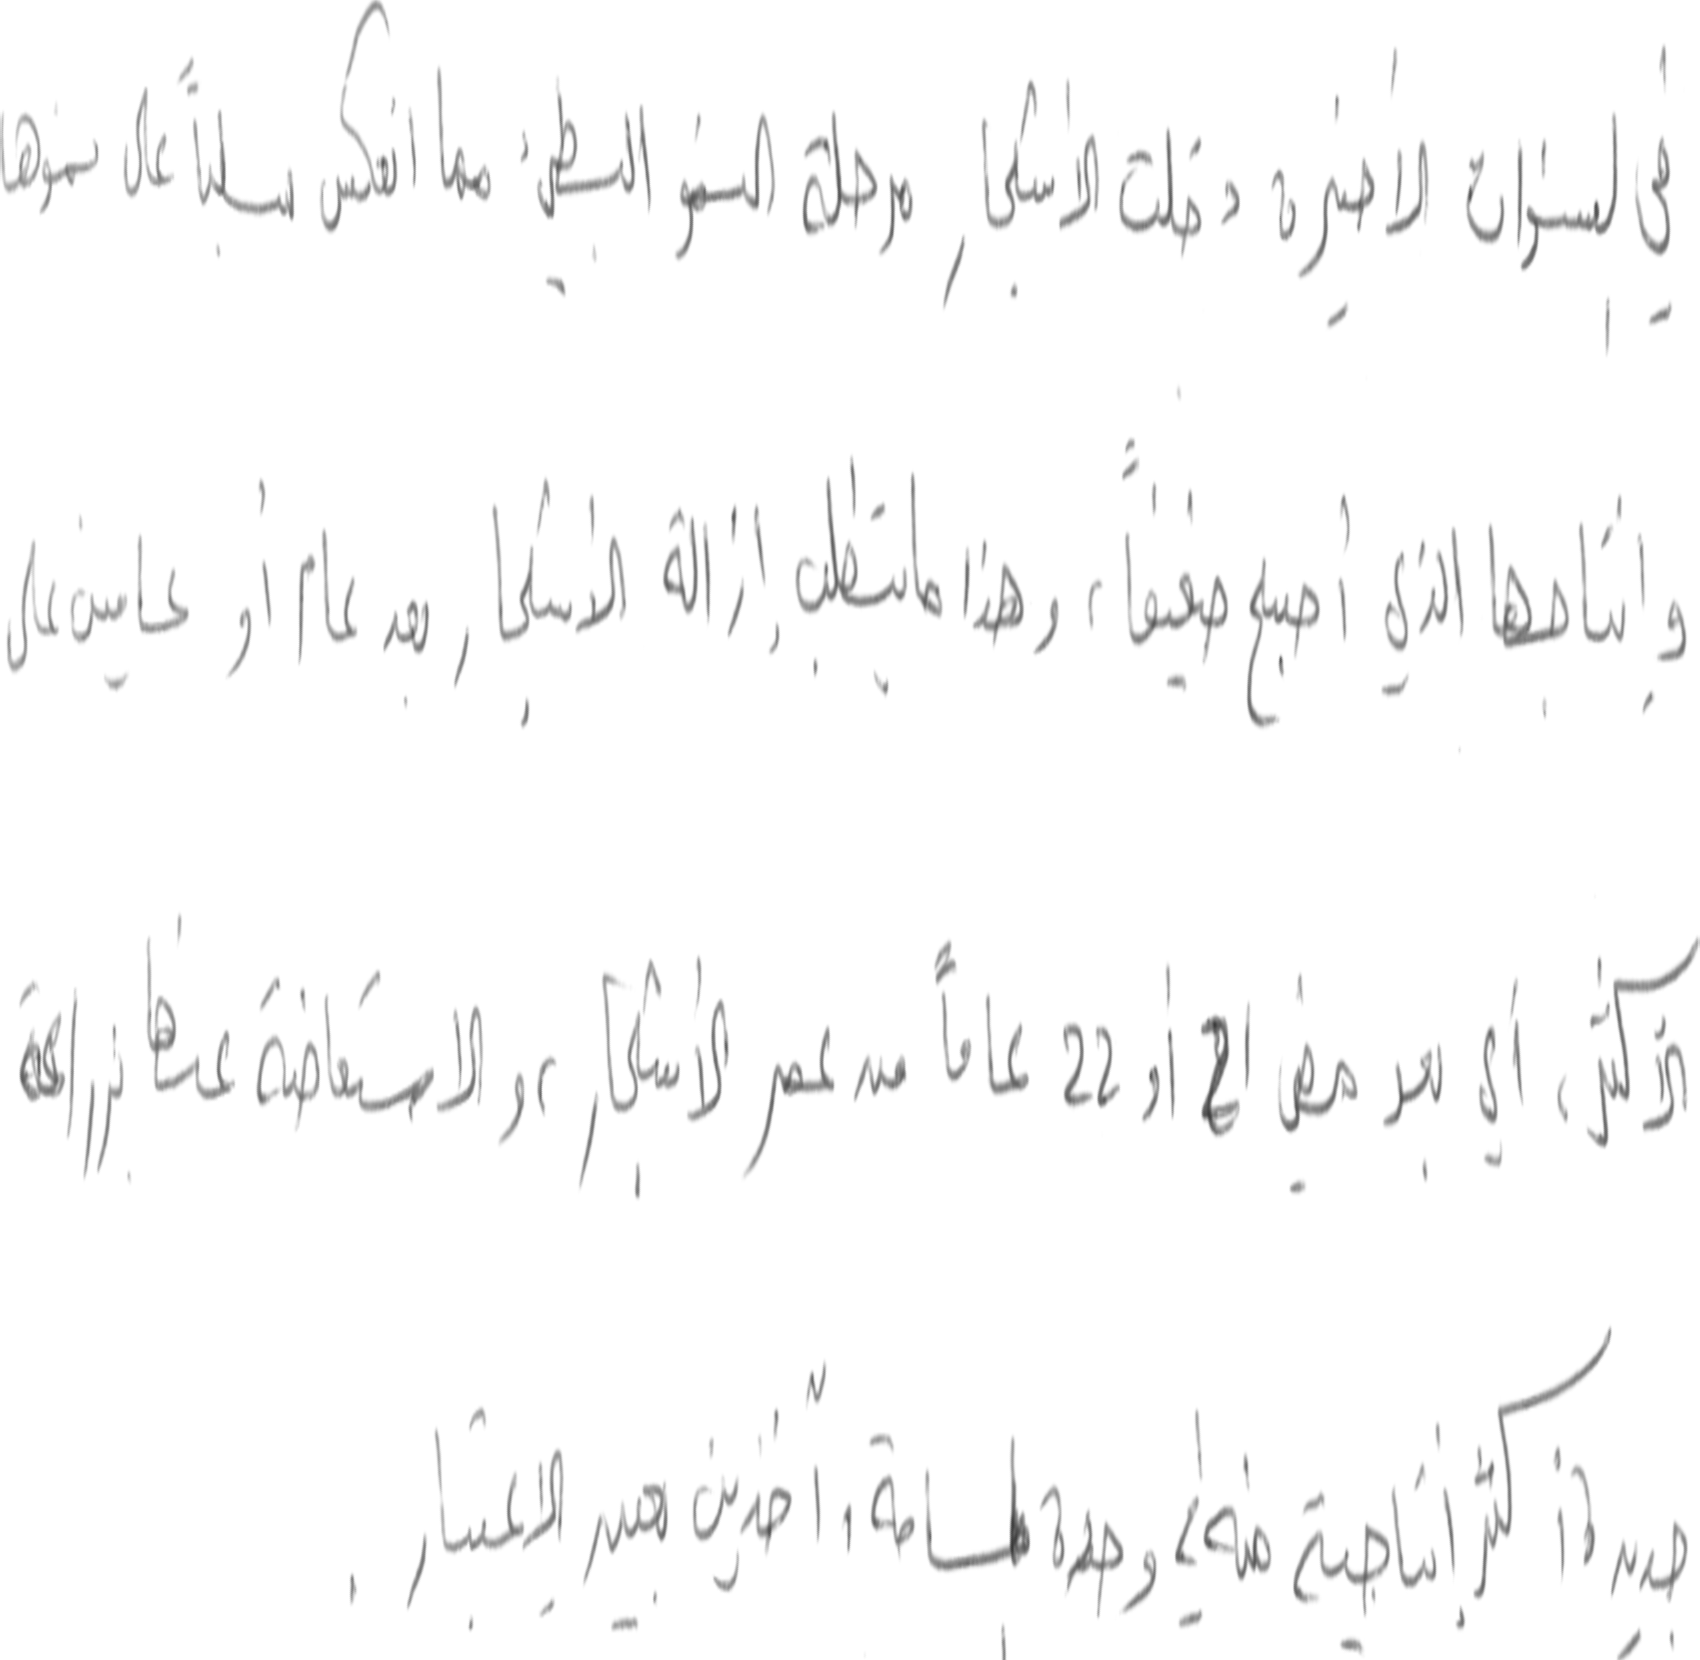 في السنوات الأخيرة دخلت الأشجار مرحلة النمو البطيء مما انعكس سلباً على نموها
وإنتاجها الذي أصبح ضعيفاً، وهذا مايتطلب إزالة الأشجار بعد عام أو عامين على
الأكثر، أي بعد مضي 21 أو 22 عاماً من عمر الأشجار، والاستعاضة عنها بزراعة
جديدة أكثر إنتاجية في وحدة المساحة، آخذين بعين الاعتبار.